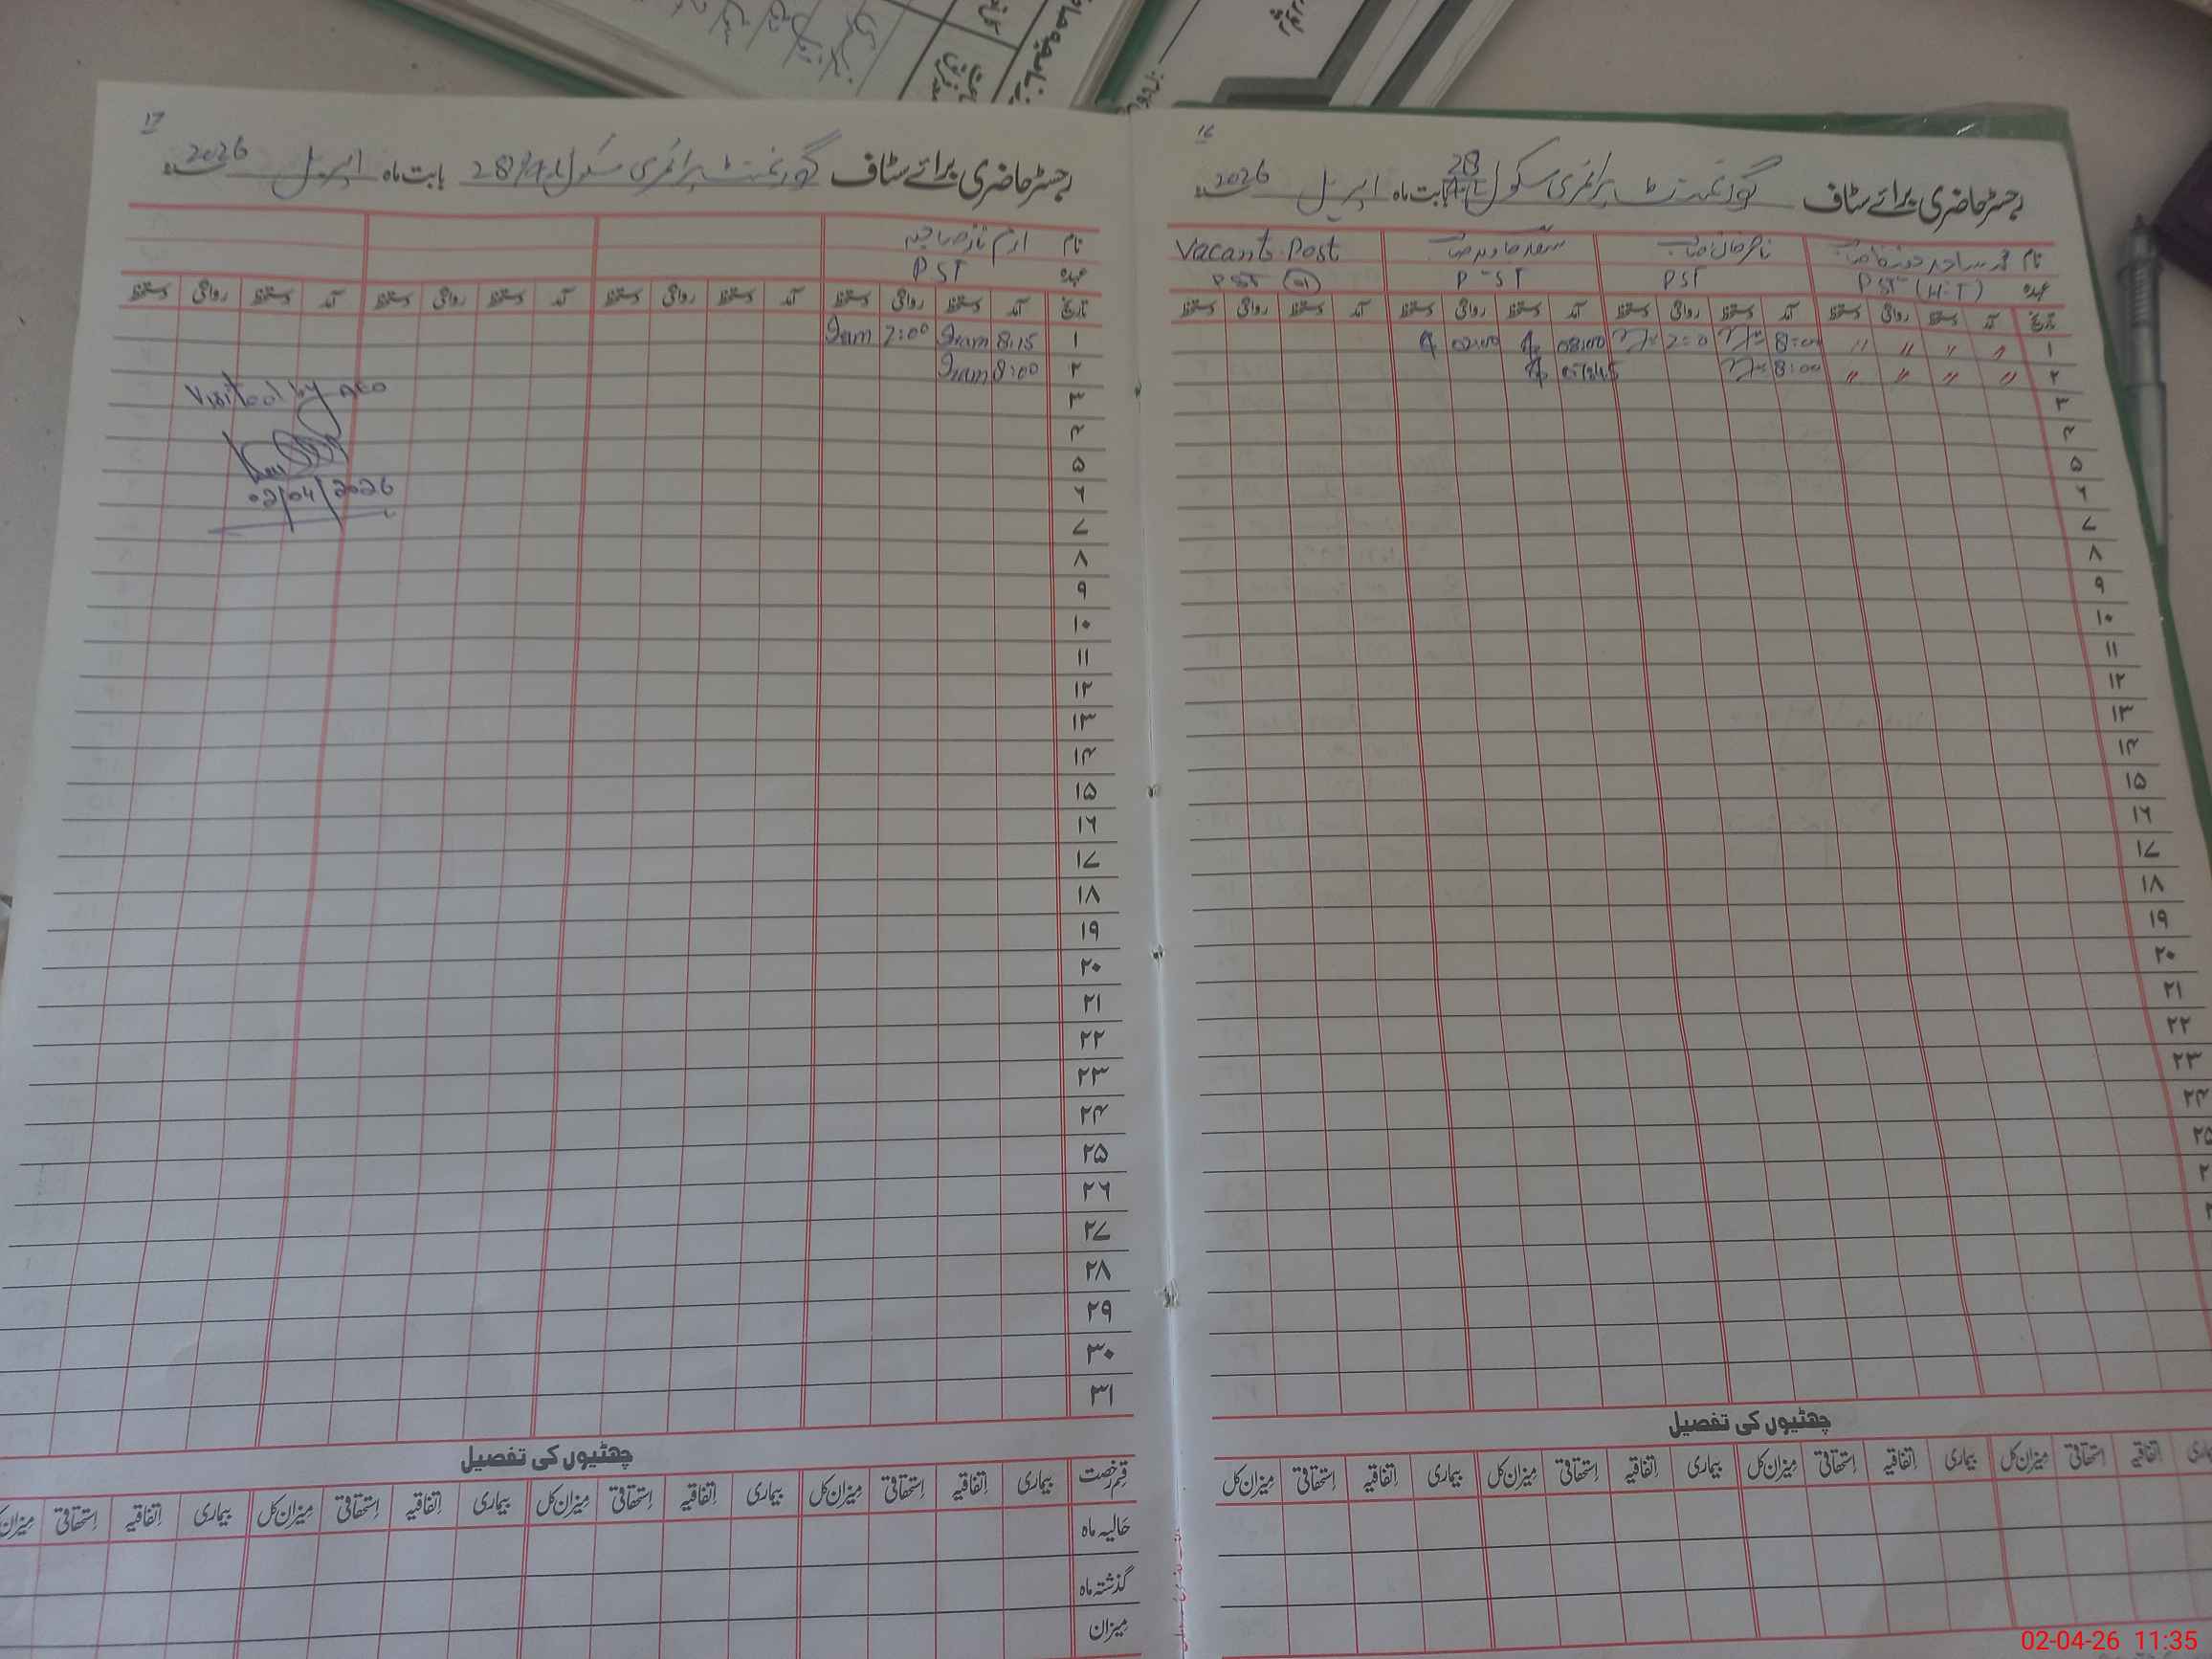 16
رجسٹر حاضری برائے سٹاف گورنمنٹ پرائمری سکول 28/4L بابت ماہ اپریل 2026ء
نام ناصر خان صاحب Vacant Post
عہدہ PST (H.T) PST PST PST 01
تاریخ آمد دستخط روانگی دستخط آمد دستخط روانگی دستخط آمد دستخط روانگی دستخط آمد دستخط روانگی دستخط
۱ 〃 〃 〃 〃 8:00 2:0 08:00 02:00
۲ 〃 〃 〃 〃 8:00
۳
۴
۵
۶
۷
۸
۹
۱۰
۱۱
۱۲
۱۳
۱۴
۱۵
۱۶
۱۷
۱۸
۱۹
۲۰
۲۱
۲۲
۲۳
۲۴
۲۵
چھٹیوں کی تفصیل
بیماری اتفاقیہ استحقاقی میزان کل بیماری اتفاقیہ استحقاقی میزان کل بیماری اتفاقیہ استحقاقی میزان کل بیماری اتفاقیہ استحقاقی میزان کل
17
رجسٹر حاضری برائے سٹاف گورنمنٹ پرائمری سکول 28/4L بابت ماہ اپریل 2026ء
نام ارم ناز صاحبہ
عہدہ PST
تاریخ آمد دستخط روانگی دستخط آمد دستخط روانگی دستخط آمد دستخط روانگی دستخط آمد دستخط روانگی دستخط
۱ 8:15 Iram 2:00 Iram
۲ 8:00 Iram
۳
۴
۵
۶
۷
۸
۹
۱۰
۱۱
۱۲
۱۳
۱۴
۱۵
۱۶
۱۷
۱۸
۱۹
۲۰
۲۱
۲۲
۲۳
۲۴
۲۵
۲۶
۲۷
۲۸
۲۹
۳۰
۳۱
Visited by AEO
02/04/2026
چھٹیوں کی تفصیل
قسم رخصت بیماری اتفاقیہ استحقاقی میزان کل بیماری اتفاقیہ استحقاقی میزان کل بیماری اتفاقیہ استحقاقی میزان کل بیماری اتفاقیہ استحقاقی میزان کل
حالیہ ماہ
گذشتہ ماہ
میزان
02-04-26 11:35